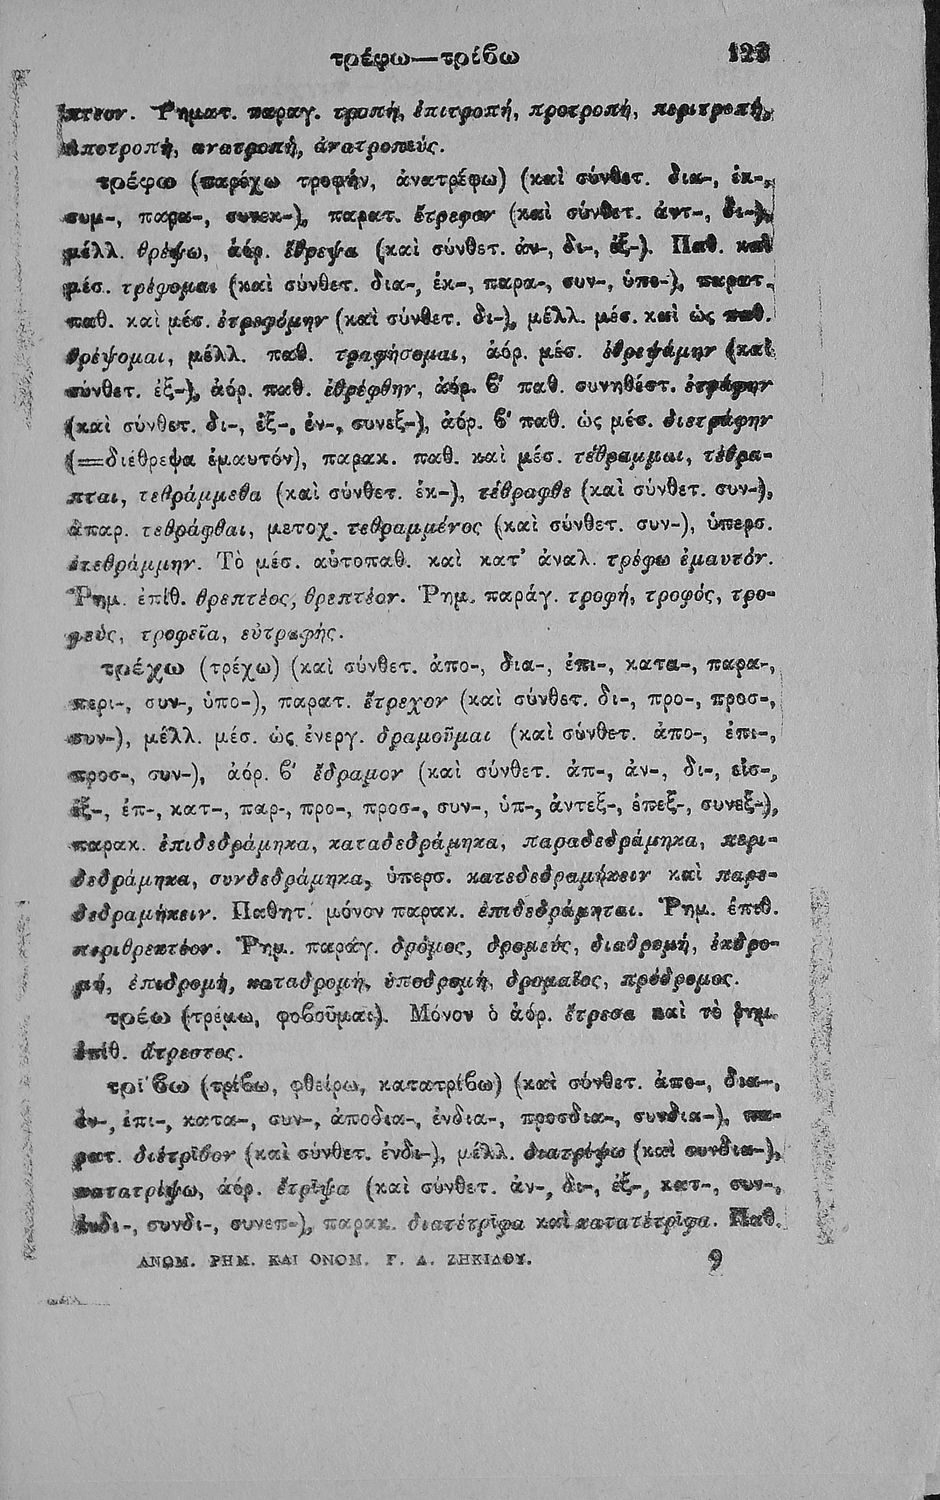 τρέφω—τρίβω
πτεον. Ῥηματ. παραγ. τροπή, ἐπιτροπή, προτροπή, περιτροπή,
ἀποτροπή, ανατροπή, ἀνατροπεύς.
τρέφω (παρέχω τροφήν, ἀνατρέφω) (καὶ σύνθετ. δια-, ἐκ-,
συμ-, παρα-, συνεκ-), παρατ. ἔτρεφον (καὶ σύνθετ. ἀντ-, δι-),
μέλλ. θρέψω, ἀόρ. ἔθρεψα (καὶ σύνθετ. ἀν-, δι-, ἐξ-). Παθ. καὶ
μέσ. τρέφομαι (καὶ σύνθετ. δια-, ἐκ-, παρα-, συν-, ὑπο-), παρατ.
παθ. καὶ μέσ. ἐτρεφόμην (καὶ σύνθετ. δι-), μέλλ. μέσ. καὶ ὡς παθ.
θρέψομαι, μέλλ. παθ. τραφήσομαι, ἀόρ. μέσ. ἐθρεψάμην (καὶ
σύνθετ. ἐξ-), ἀόρ. παθ. ἐθρέφθην, ἀόρ. β' παθ. συνηθέστ. ἐτράφην
(καὶ σύνθετ. δι-, ἐξ-, ἐν-, συνεξ-), ἀόρ. β' παθ. ὡς μέσ. διετράφην
(=διέθρεψα ἐμαυτόν), παρακ. παθ. καὶ μέσ. τέθραμμαι, τέθρα-
πται, τεθράμμεθα (καὶ σύνθετ. ἐκ-), τέθραφθε (καὶ σύνθετ. συν-),
ἀπαρ. τεθράφθαι, μετοχ. τεθραμμένος (καὶ σύνθετ. συν-), ὑπερσ.
ἐτεθράμμην. Τὸ μέσ. αὐτοπαθ. καὶ κατ' ἀναλ. τρέφω ἐμαυτόν.
Ῥημ. ἐπίθ. θρεπτέος, θρεπτέον. Ῥημ. παράγ. τροφή, τροφός, τρο-
φεύς, τροφεῖα, εὐτραφής.
τρέχω (τρέχω) (καὶ σύνθετ. ἀπο-, δια-, ἐπι-, κατα-, παρα-,
περι-, συν-, ὑπο-), παρατ. ἔτρεχον (καὶ σύνθετ. δι-, προ-, προσ-,
συν-), μέλλ. μέσ. ὡς ἐνεργ. δραμοῦμαι (καὶ σύνθετ. ἀπο-, ἐπι-,
προσ-, συν-), ἀόρ. β' ἔδραμον (καὶ σύνθετ. ἀπ-, ἀν-, δι-, εἰσ-,
ἐξ-, ἐπ-, κατ-, παρ-, προ-, προσ-, συν-, ὑπ-, ἀντεξ-, ἐπεξ-, συνεξ-),
παρακ. ἐπιδεδράμηκα, καταδεδράμηκα, παραδεδράμηκα, περι-
δεδράμηκα, συνδεδράμηκα, ὑπερσ. κατεδεδραμήκειν καὶ παρε-
δεδραμήκειν. Παθητ. μόνον παρακ. ἐπιδεδράμηται. Ῥημ. ἐπίθ.
περιθρεκτέον. Ῥημ. παράγ. δρόμος, δρομεύς, διαδρομή, ἐκδρο-
μή, ἐπιδρομή, καταδρομή, ὑποδρομή, δρομαῖος, πρόδρομος.
τρέω (τρέμω, φοβοῦμαι). Μόνον ὁ ἀόρ. ἔτρεσα καὶ τὸ ῥημ.
ἐπίθ. ἄτρεστος.
τρίβω (τρίβω, φθείρω, κατατρίβω) (καὶ σύνθετ. ἀπο-, δια-,
ἐν-, ἐπι-, κατα-, συν-, ἀποδια-, ἐνδια-, προσδια-, συνδια-), πα-
ρατ. διέτριβον (καὶ σύνθετ. ἐνδι-), μέλλ. διατρίψω (καὶ συνδια-),
κατατρίψω, ἀόρ. ἔτριψα (καὶ σύνθετ. ἀν-, δι-, ἐξ-, κατ-, συν-,
ἐνδι-, συνδι-, συνεπ-), παρακ. διατέτριφα καὶ κατατέτριφα. Παθ.
ΑΝΩΜ. ΡΗΜ. ΚΑΙ ΟΝΟΜ. Γ. Δ. ΖΗΚΙΔΟΥ. 9